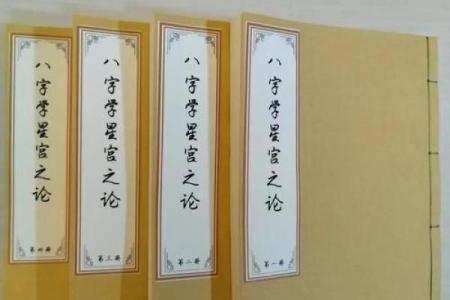 八字学星宫之论
第四册
八字学星宫之论
第三册
八字学星宫之论
第二册
八字学星宫之论
第一册